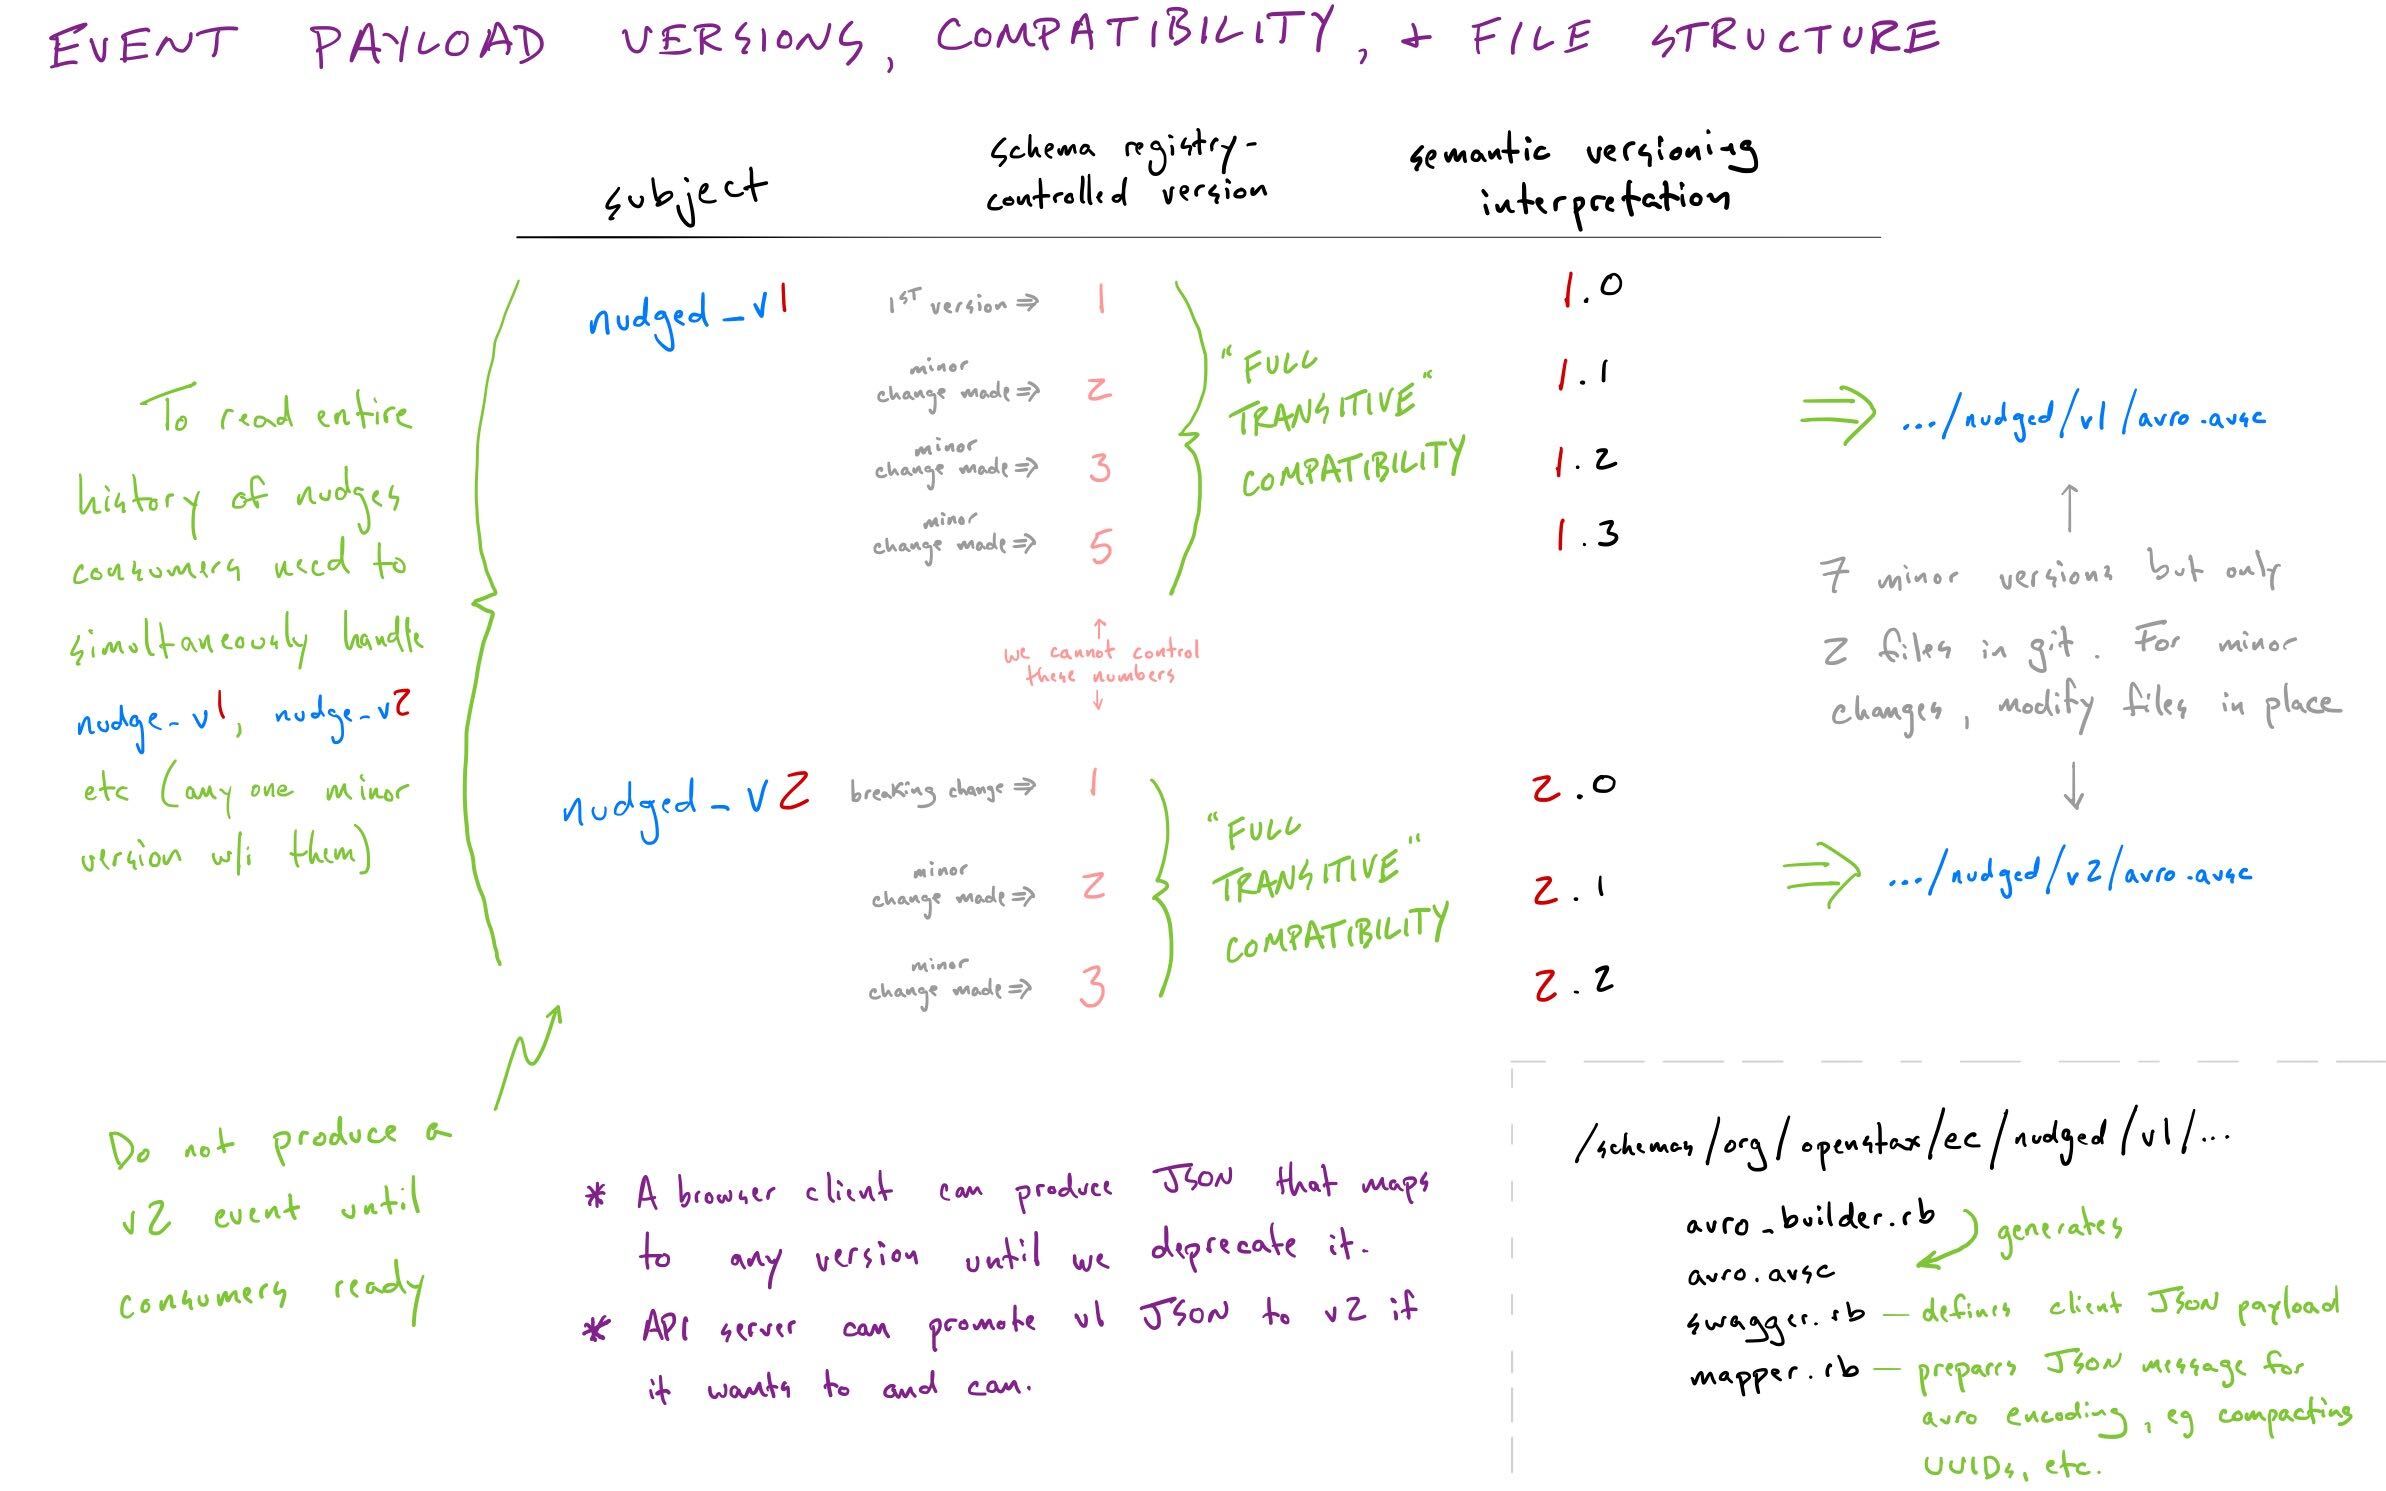 EVENT PAYLOAD VERSIONS, COMPATIBILITY, + FILE STRUCTURE
subject
schema registry-
controlled version
semantic versioning
interpretation
To read entire
history of nudges
consumers need to
simultaneously handle
nudge_v1, nudge_v2
etc (any one minor
version w/i them)
nudged_v1
1ST version ⇒ 1
minor
change made ⇒ 2
minor
change made ⇒ 3
minor
change made ⇒ 5
"FULL
TRANSITIVE"
COMPATIBILITY
1.0
1.1
1.2
1.3
⇒ .../nudged/v1/avro.avsc
↑
we cannot control
these numbers
↓
↑
7 minor versions but only
2 files in git. For minor
changes, modify files in place
↓
nudged_v2
breaking change ⇒ 1
minor
change made ⇒ 2
minor
change made ⇒ 3
"FULL
TRANSITIVE"
COMPATIBILITY
2.0
2.1
2.2
⇒ .../nudged/v2/avro.avsc
Do not produce a
v2 event until
consumers ready
* A browser client can produce JSON that maps
to any version until we deprecate it.
* API server can promote v1 JSON to v2 if
it wants to and can.
/schemas/org/openstax/ec/nudged/v1/...
avro_builder.rb
generates
avro.avsc
swagger.rb — defines client JSON payload
mapper.rb — prepares JSON message for
avro encoding, eg compacting
UUIDs, etc.